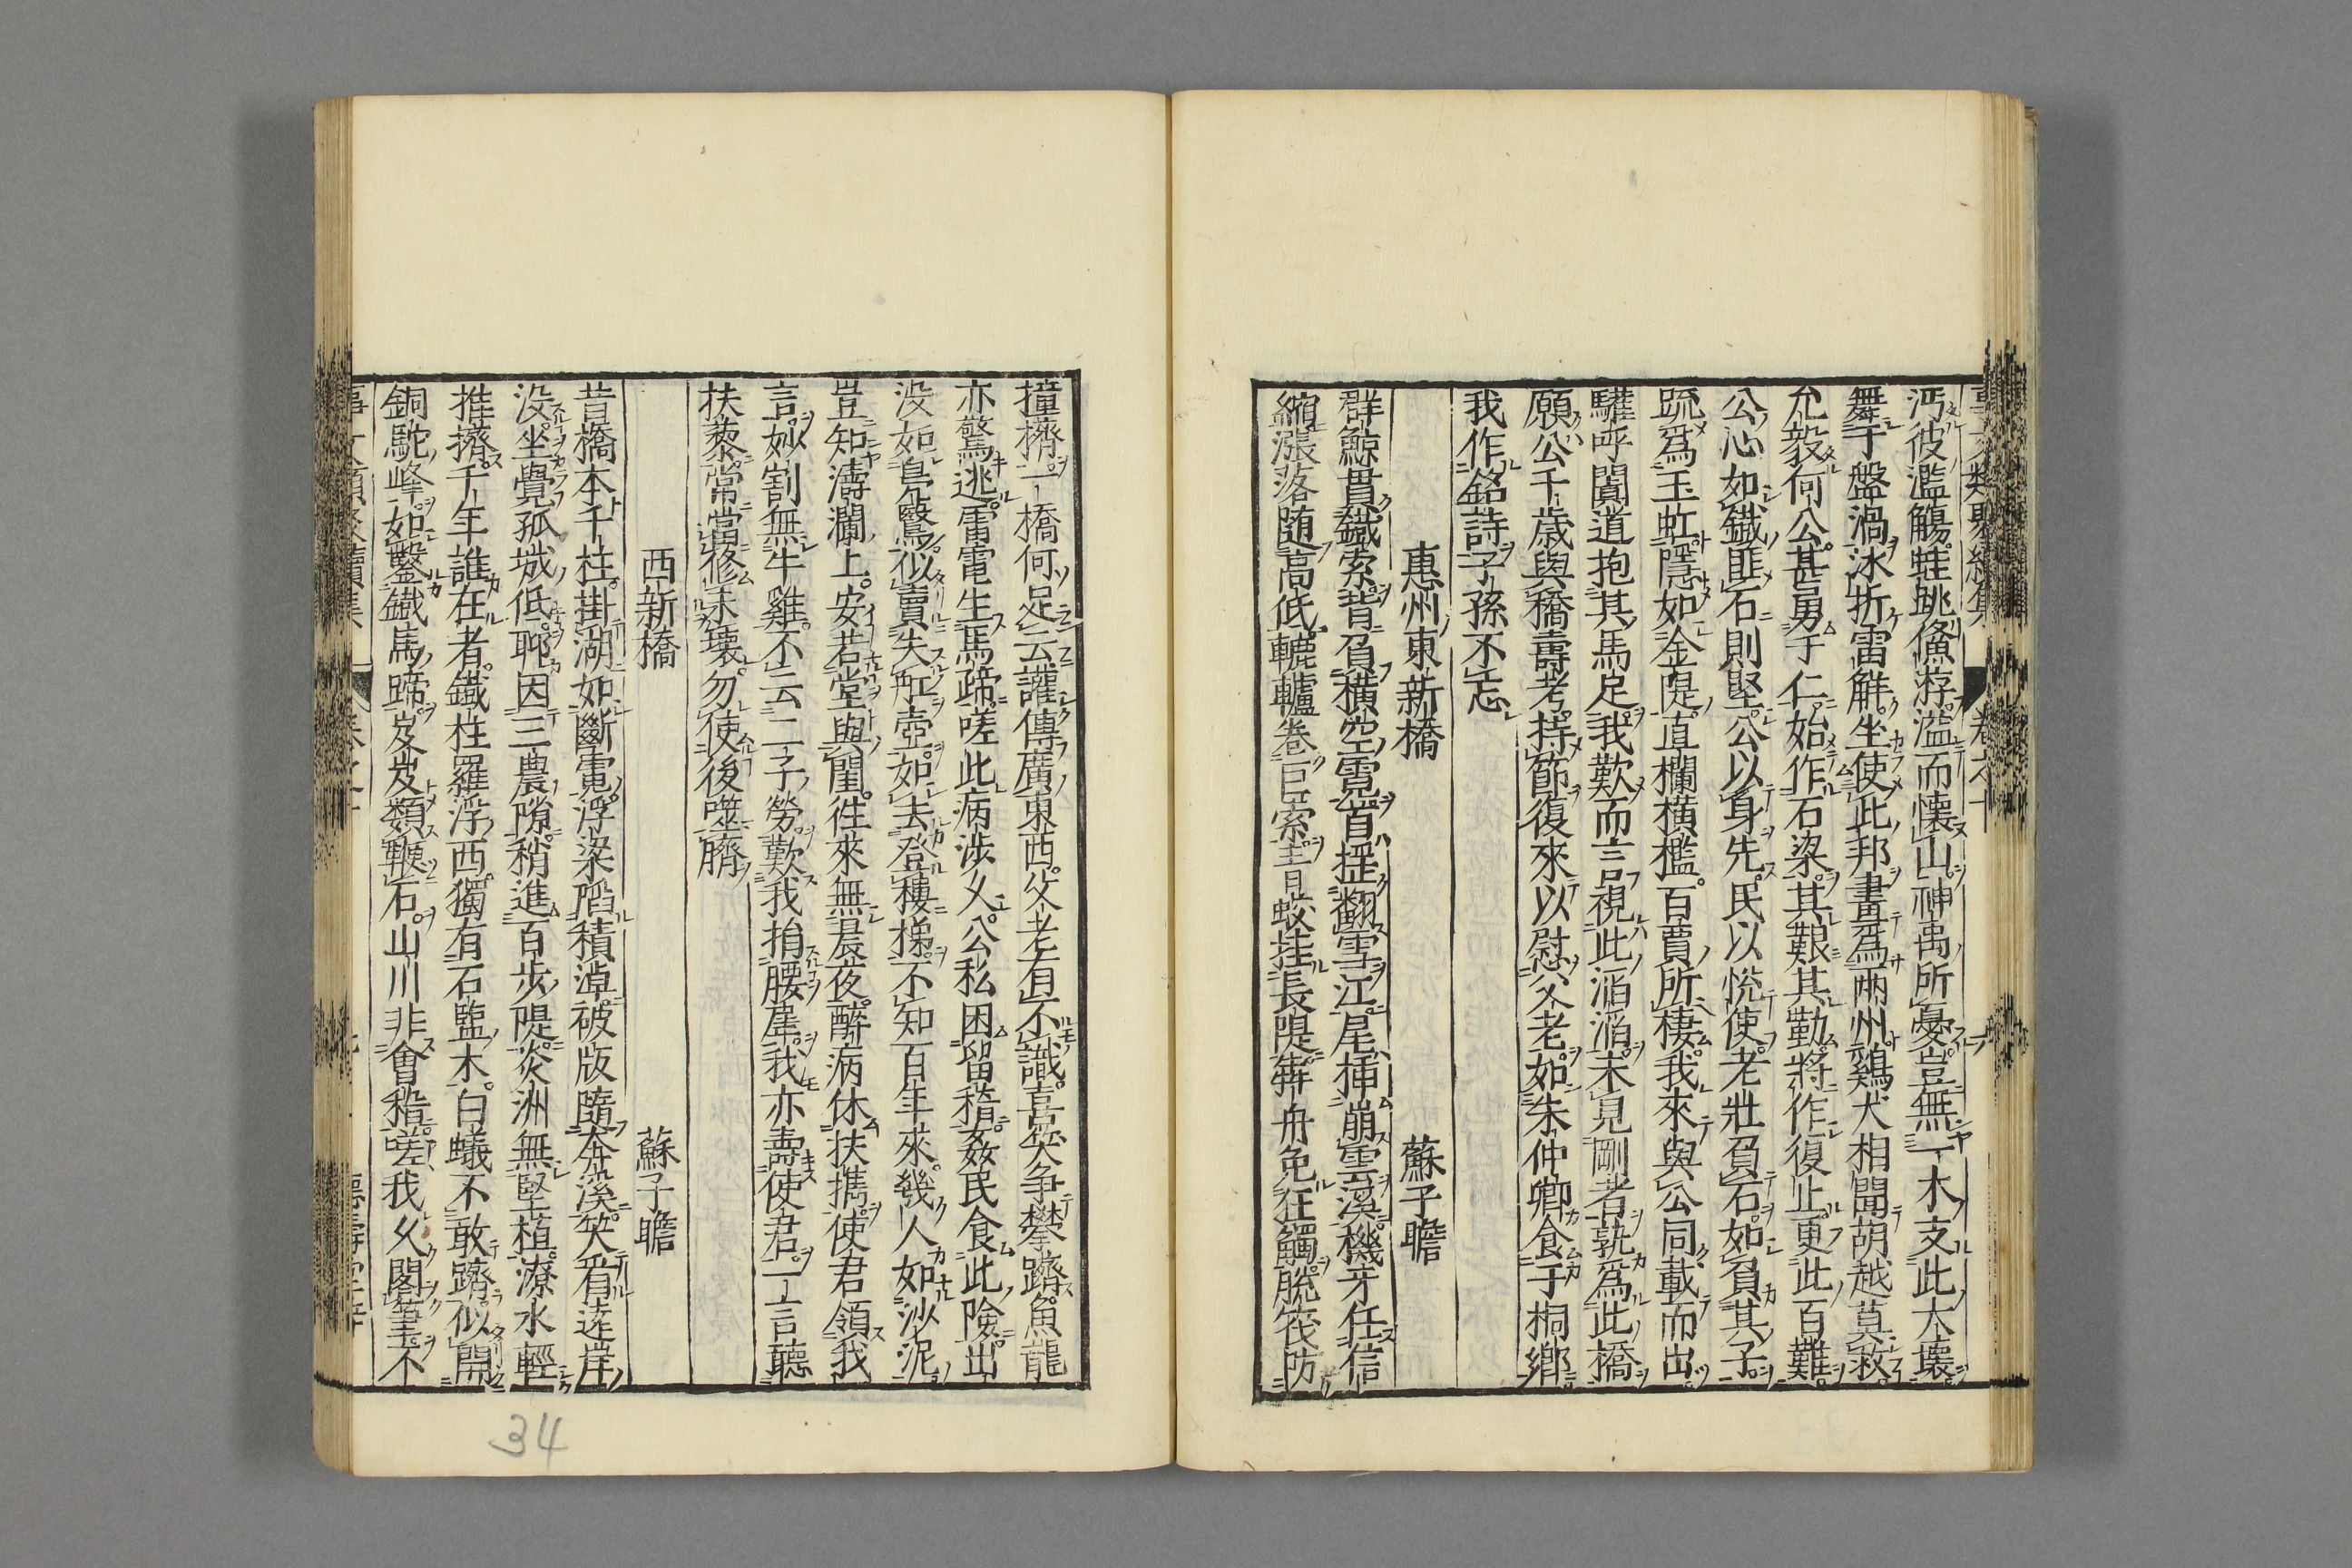 沔彼濫觴蛙跳儵游溢而懐山神禹所憂豈無一木支此大壊
舞于盤渦氷折雷解坐使此邦畫爲兩州鷄犬相聞胡越莫救
允毅何公甚勇于仁始作石梁其艱其勤將作復止更此百難
公心如鐵匪石則堅公以身先民以悦使老壯負石如負其子
䟽爲玉虹隱如金隄直欄横檻百賈所棲我來與公同載而出
驩呼闐道抱其馬足我歎而言視此滔滔未見剛者孰爲此橋
願公千歳與橋壽考持節復來以慰父老如朱仲卿食于桐鄉
我作銘詩子孫不忘
惠州東新橋　蘇子瞻
群鯨貫鐵索背負横空霓首揺翻雪江尾挿崩雲溪機牙任信
縮漲落隨高低轆轤卷巨索青蛟挂長隄犇舟免狂觸脱筏防
撞擠一橋何足云讙傳廣東西父老有不識喜笑争攀躋魚龍
亦驚逃雷電生馬蹄嗟此病渉久公私困留稽姦民食此險出
没如鳬鷖似賣失舡壺如去登樓梯不知百年來幾人如沙泥
豈知濤瀾上安若堂與閨徃來無晨夜醉病休扶携使君領我
言妙割無牛雞不云二子勞歎我捐腰犀我亦壽使君一言聽
扶藜常當修未壊勿使後噬臍
西新橋　蘇子瞻
昔橋本千柱掛湖如斷霓浮梁陷積淖破版隨奔溪笑看逺岸
没坐覺孤城低聊因三農隙稍進百歩隄炎洲無堅植潦水輕
推擠千年誰在者鐵柱羅浮西獨有石盬木白蟻不敢躋似開
銅駝峰如鑿鐵馬蹄岌岌類鞭石山川非會稽嗟我久閣筆不
34